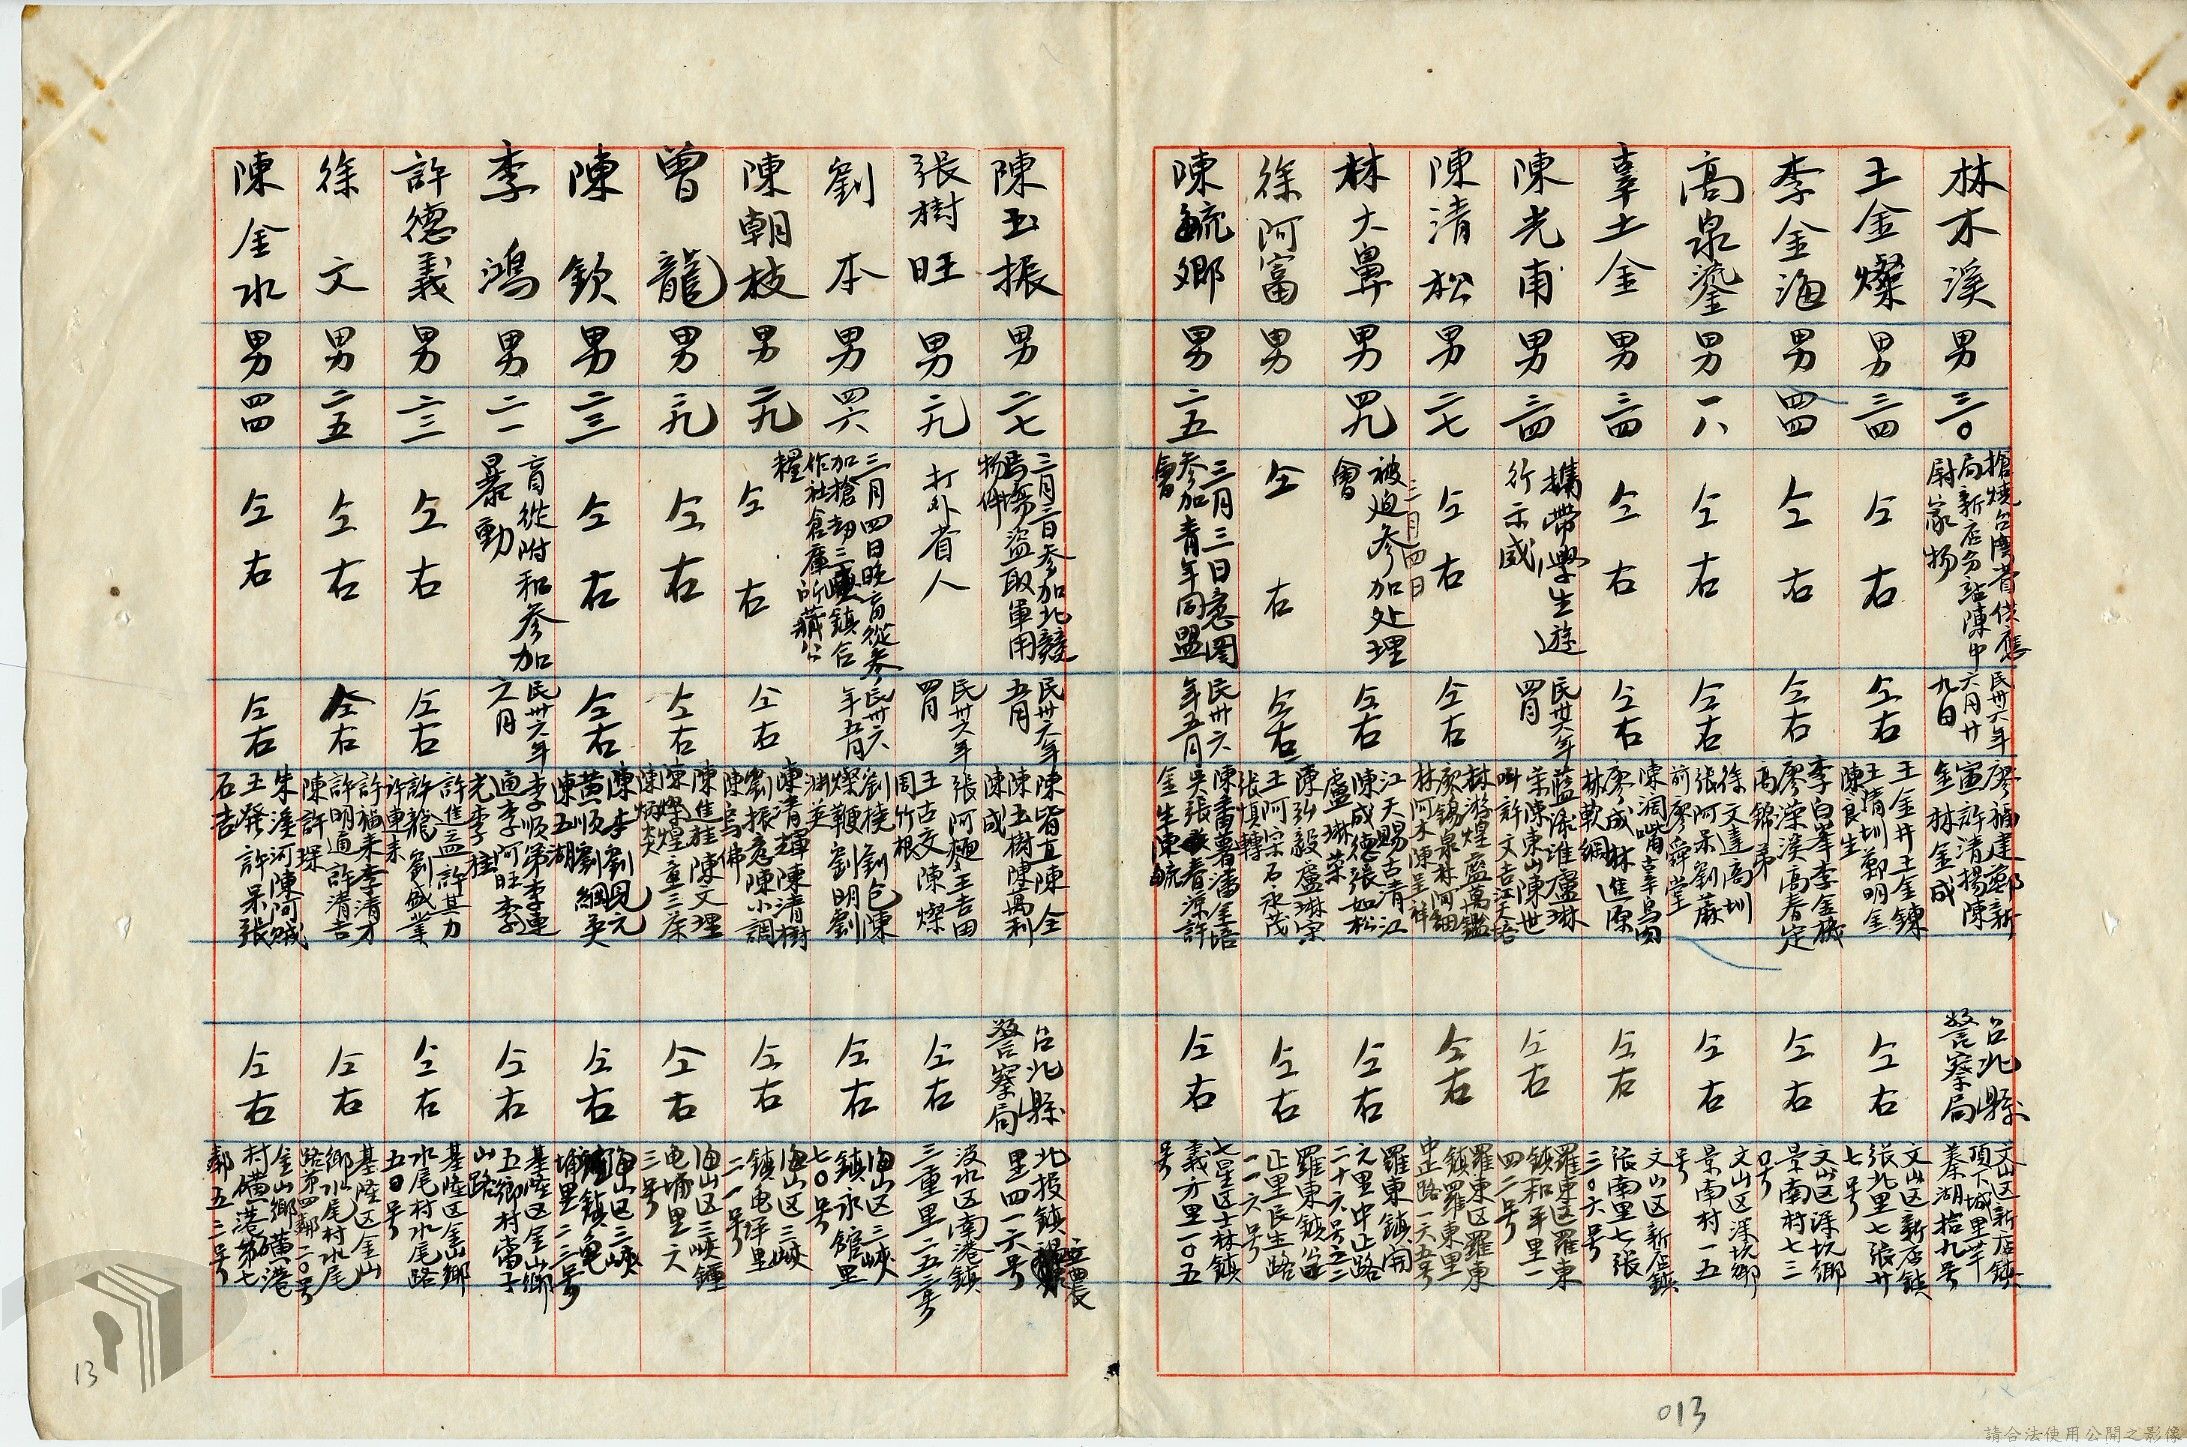 林木溪
男
三〇
搶燒台灣省供應
局新店分站陳中
尉家物
民卅六年
六月廿
九日
廖福建鄭新
寅許清揚陳
金林金成
台北縣
警察局
文山区新店鎮
頂下城里芉
蓁湖拾九号
王金燦
男
三四
仝右
仝右
王金井王金鍊
王清圳鄭明金
陳良生
仝右
文山区新店鎮
張北里七張廿
七号
李金海
男
四四
仝右
仝右
李白峯李金機
廖榮溪高春定
高錦弟
仝右
文山区深坑鄉
景南村七三
〇号
高泉鎏
男
一八
仝右
仝右
徐文達高圳
張阿呆劉蔴
前廖舜堂
仝右
文山区深坑鄉
景南村一五
号
辜土金
男
三四
仝右
仝右
陳澗嘴辜烏肉
廖成林進源
林軟綢
仝右
文山区新店鎮
張南里七張
三〇六号
陳光甫
男
三四
攜帶學生遊
行示威
民卅六年
四月
仝右
羅東区羅東
鎮和平里一
四二号
陳清松
男
二七
仝右
仝右
仝右
羅東区羅東
鎮羅東里
中正路一六五号
林大鼻
男
四九
三月四日
被迫參加处理
會
仝右
江天賜古清江
陳成德張如松
盧琳榮
仝右
羅東鎮開
元里中正路
二十六号之二
徐阿富
男
仝右
仝右
陳弘毅盧琳宗
王阿宗石永茂
張慎轉
仝右
正里民生路
一一六号
陳毓卿
男
二五
三月三日意圖
参加青年同盟
會
民卅六
年五月
仝右
七星区士林鎮
義方里一〇五
号
陳玉振
男
二七
三月三日参加北競
馬場盜取軍用
物件
民卅六年
五月
陳皆立陳全
陳玉樹陳萬利
陳成
台北縣
警察局
北投鎮
立農
里四一六号
張樹旺
男
二九
打外省人
民卅六年
四月
張阿麺王吉田
王古文陳燦
周竹根
仝右
淡水区南港鎮
三重里二五三号
劉本
男
四六
三月四日晚盲從參
加搶劫三峽鎮合
作社倉庫所藏公
糧
民卅六
年五月
劉桡劉包陳
燦鞭劉明劉
淵英
仝右
海山区三峽
鎮永館里
七〇号
陳朝枝
男
二九
仝右
仝右
陳清輝陳清樹
劉振意陳小調
陳烏佛
仝右
海山区三峽
鎮龟坪里
二一号
曾龍
男
三九
仝右
仝右
陳進旺陳文理
陳燦煌童三秦
陳炳炎
仝右
海山区三峽鍾
龟埔里六
三号
陳欽
男
二三
仝右
仝右
陳李劉見元
黃順劉綢英
陳五湖
仝右
海山区三峽
鎮龟
埔里二三号
李鴻
男
二一
盲從附和參加
暴動
民卅六年
之月
李順弟李連
通李阿旺李
光李桂
仝右
基隆区金山鄉
五鄉村當子
山路
許德義
男
二三
仝右
仝右
許進益許其力
許龍劉盛業
許連來
仝右
基隆区金山鄉
水尾村水尾路
五〇号
徐文
男
二五
仝右
仝右
許福来李清才
許明通許清吉
陳許琛
仝右
基隆区金山
鄉水尾村水尾
路第四鄰二〇号
陳金水
男
四四
仝右
仝右
朱漢河陳阿城
王發許呆張
石吉
仝右
金山鄉磺港
村磺港第七
鄰五二号
13
013
請合法使用公開之影像